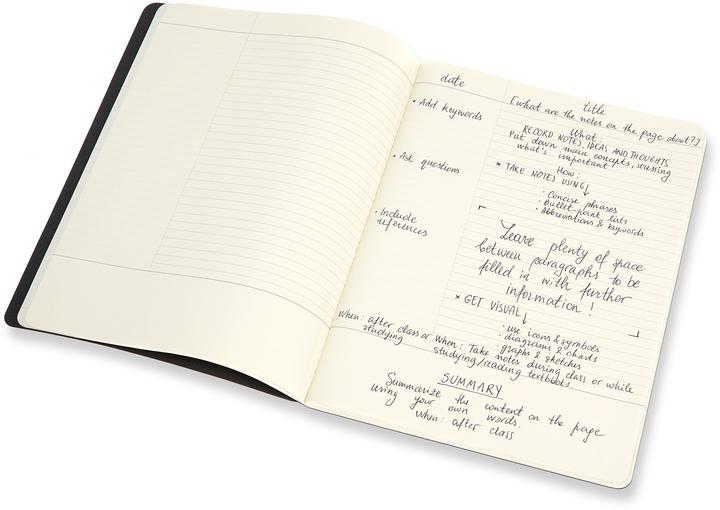 date
title
[what are the notes on the page about?]
• Add keywords
• Ask questions
• Include
references
When: after class or
studying
What:
RECORD NOTES, IDEAS AND THOUGHTS
Put down main concepts, stressing
what's important
How:
* TAKE NOTES USING↓
· Concise phrases
· Bullet-point lists
· Abbreviations & keywords
Leave plenty of space
between paragraphs to be
filled in with further
information!
* GET VISUAL↓
· use icons & symbols
· diagrams & charts
· graphs & sketches
When: Take notes during class or while
studying/reading textbooks
SUMMARY
Summarize the content on the page
using your own words.
When: after class